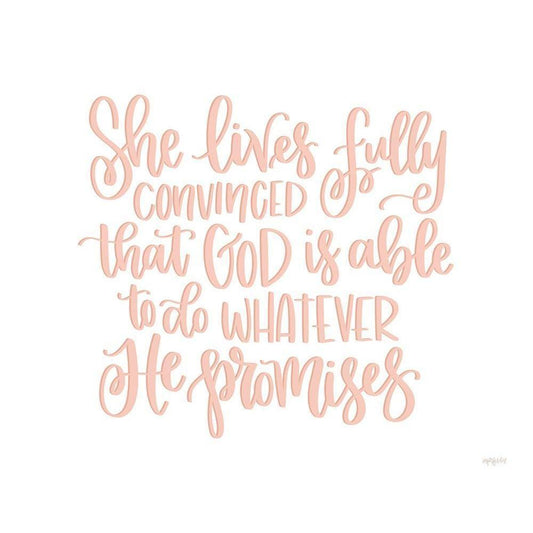 She lives fully
CONVINCED
that GOD is able
to do WHATEVER
He promises